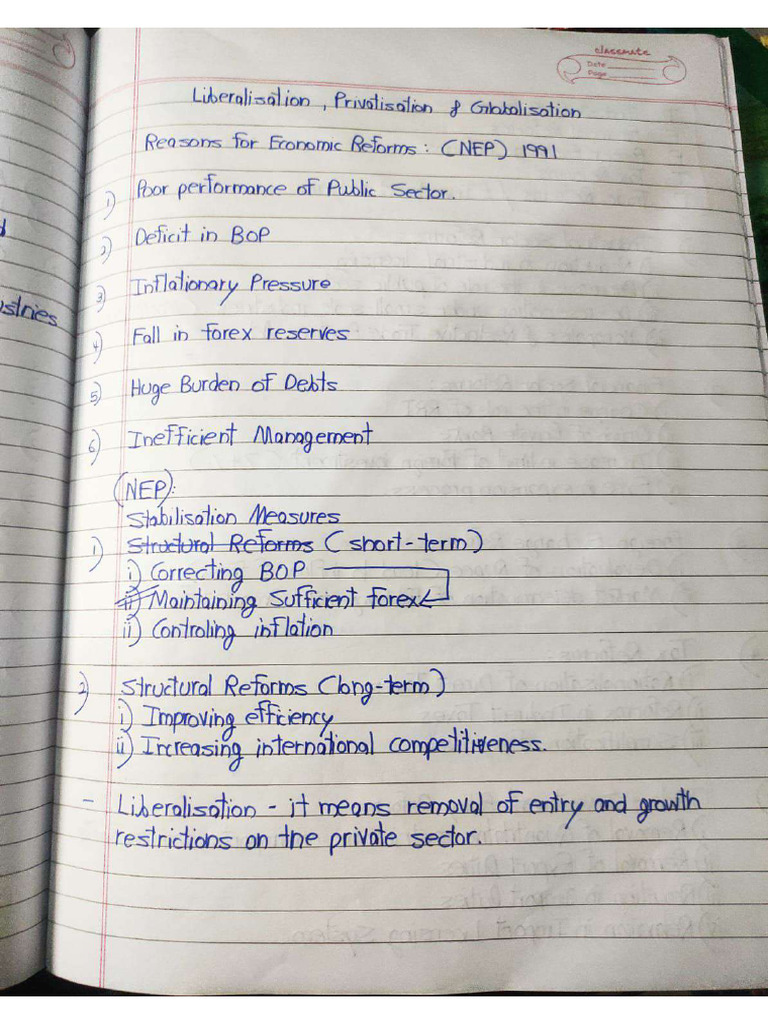 classmate
Date
Page
Liberalisation, Privatisation & Globalisation
Reasons for Economic Reforms: (NEP) 1991
1) Poor performance of Public Sector.
2) Deficit in BOP
3) Inflationary Pressure
4) Fall in forex reserves
ustries
5) Huge Burden of Debts
6) Inefficient Management
(NEP):
Stabilisation Measures
1) Structural Reforms (short-term)
i) Correcting BOP
ii) Maintaining Sufficient forex
ii) Controling inflation
2) Structural Reforms (long-term)
i) Improving efficiency
ii) Increasing international competitiveness.
- Liberalisation - it means removal of entry and growth
restrictions on the private sector.